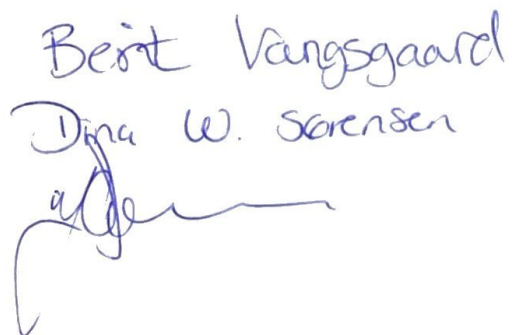 Berit Vangsgaard
Dina W. Sørensen